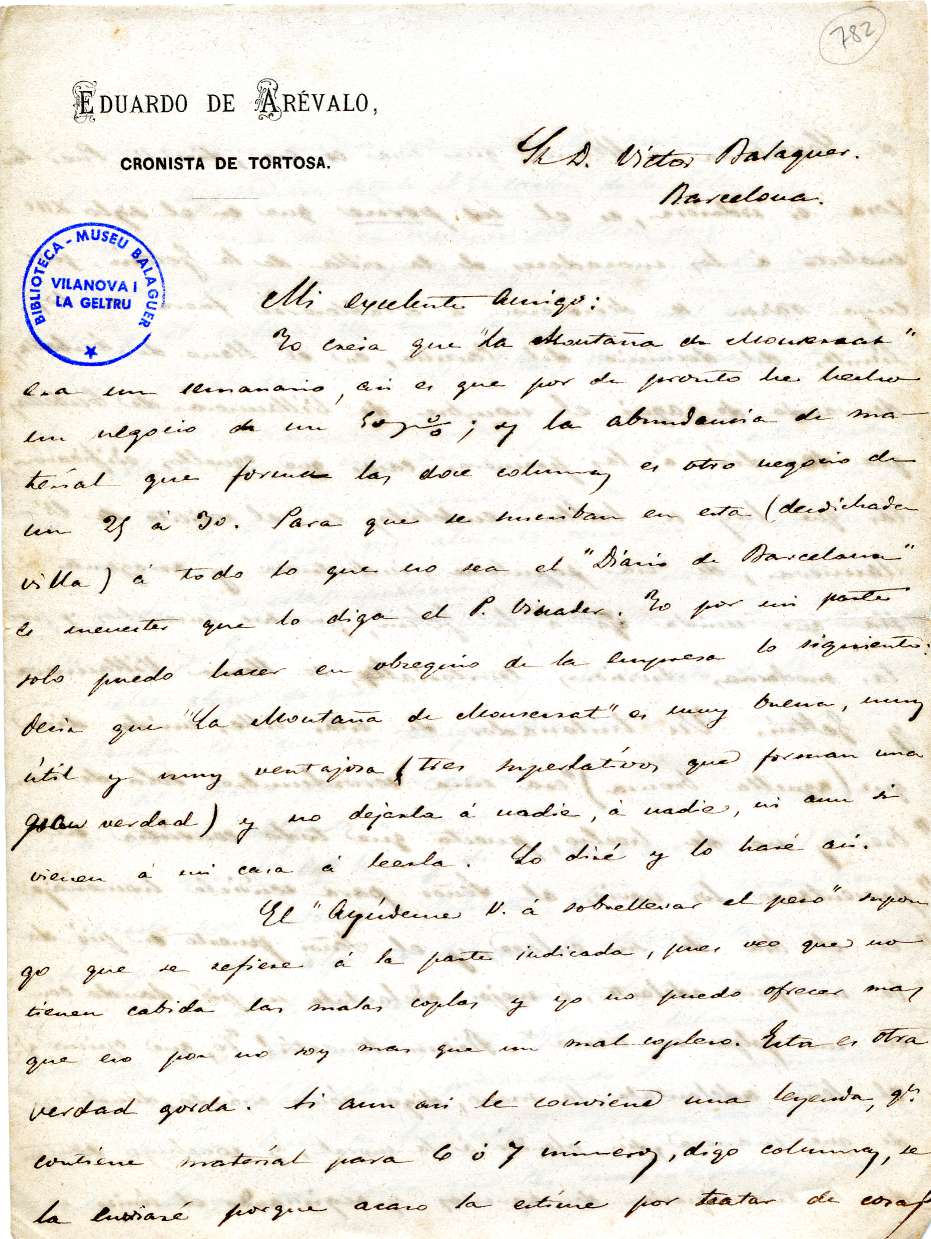 782
EDUARDO DE ARÉVALO,
CRONISTA DE TORTOSA.
Sr. D. Victor Balaguer.
Barcelona.
BIBLIOTECA - MUSEU BALAGUER
VILANOVA I
LA GELTRU
Mi excelente amigo:
Yo creia que "La Montaña de Monserrat"
era un semanario, asi es que por de pronto he hecho
un negocio de un 50 p%; y la abundancia de ma-
terial que forman las doce columnas es otro negocio de
un 25 á 30. Para que se suscriban en esta (desdichada
villa) á todo lo que no sea el "Diário de Barcelona"
es menester que lo diga el P. Vinader. Yo por mi parte
solo puedo hacer en obsequio de la empresa lo siguiente:
Decir que "La Montaña de Monserrat" es muy buena, muy
útil y muy ventajosa (tres superlativos que forman una
gran verdad) y no dejarla á nadie, á nadie, ni aun si
vienen á mi casa á leerla. Lo diré y lo haré asi.
El "Ayúdeme V. á sobrellevar el peso" supon
go que se refiere á la parte indicada, pues veo que no
tienen cabida las malas coplas y yo no puedo ofrecer mas
que eso por no soy mas que un mal coplero. Esta es otra
verdad gorda. Si aun asi le conviene una leyenda, qe.
contiene material para 6 ó 7 números, digo columnas, se
la enviaré porque acaso la estime por tratar de cosas